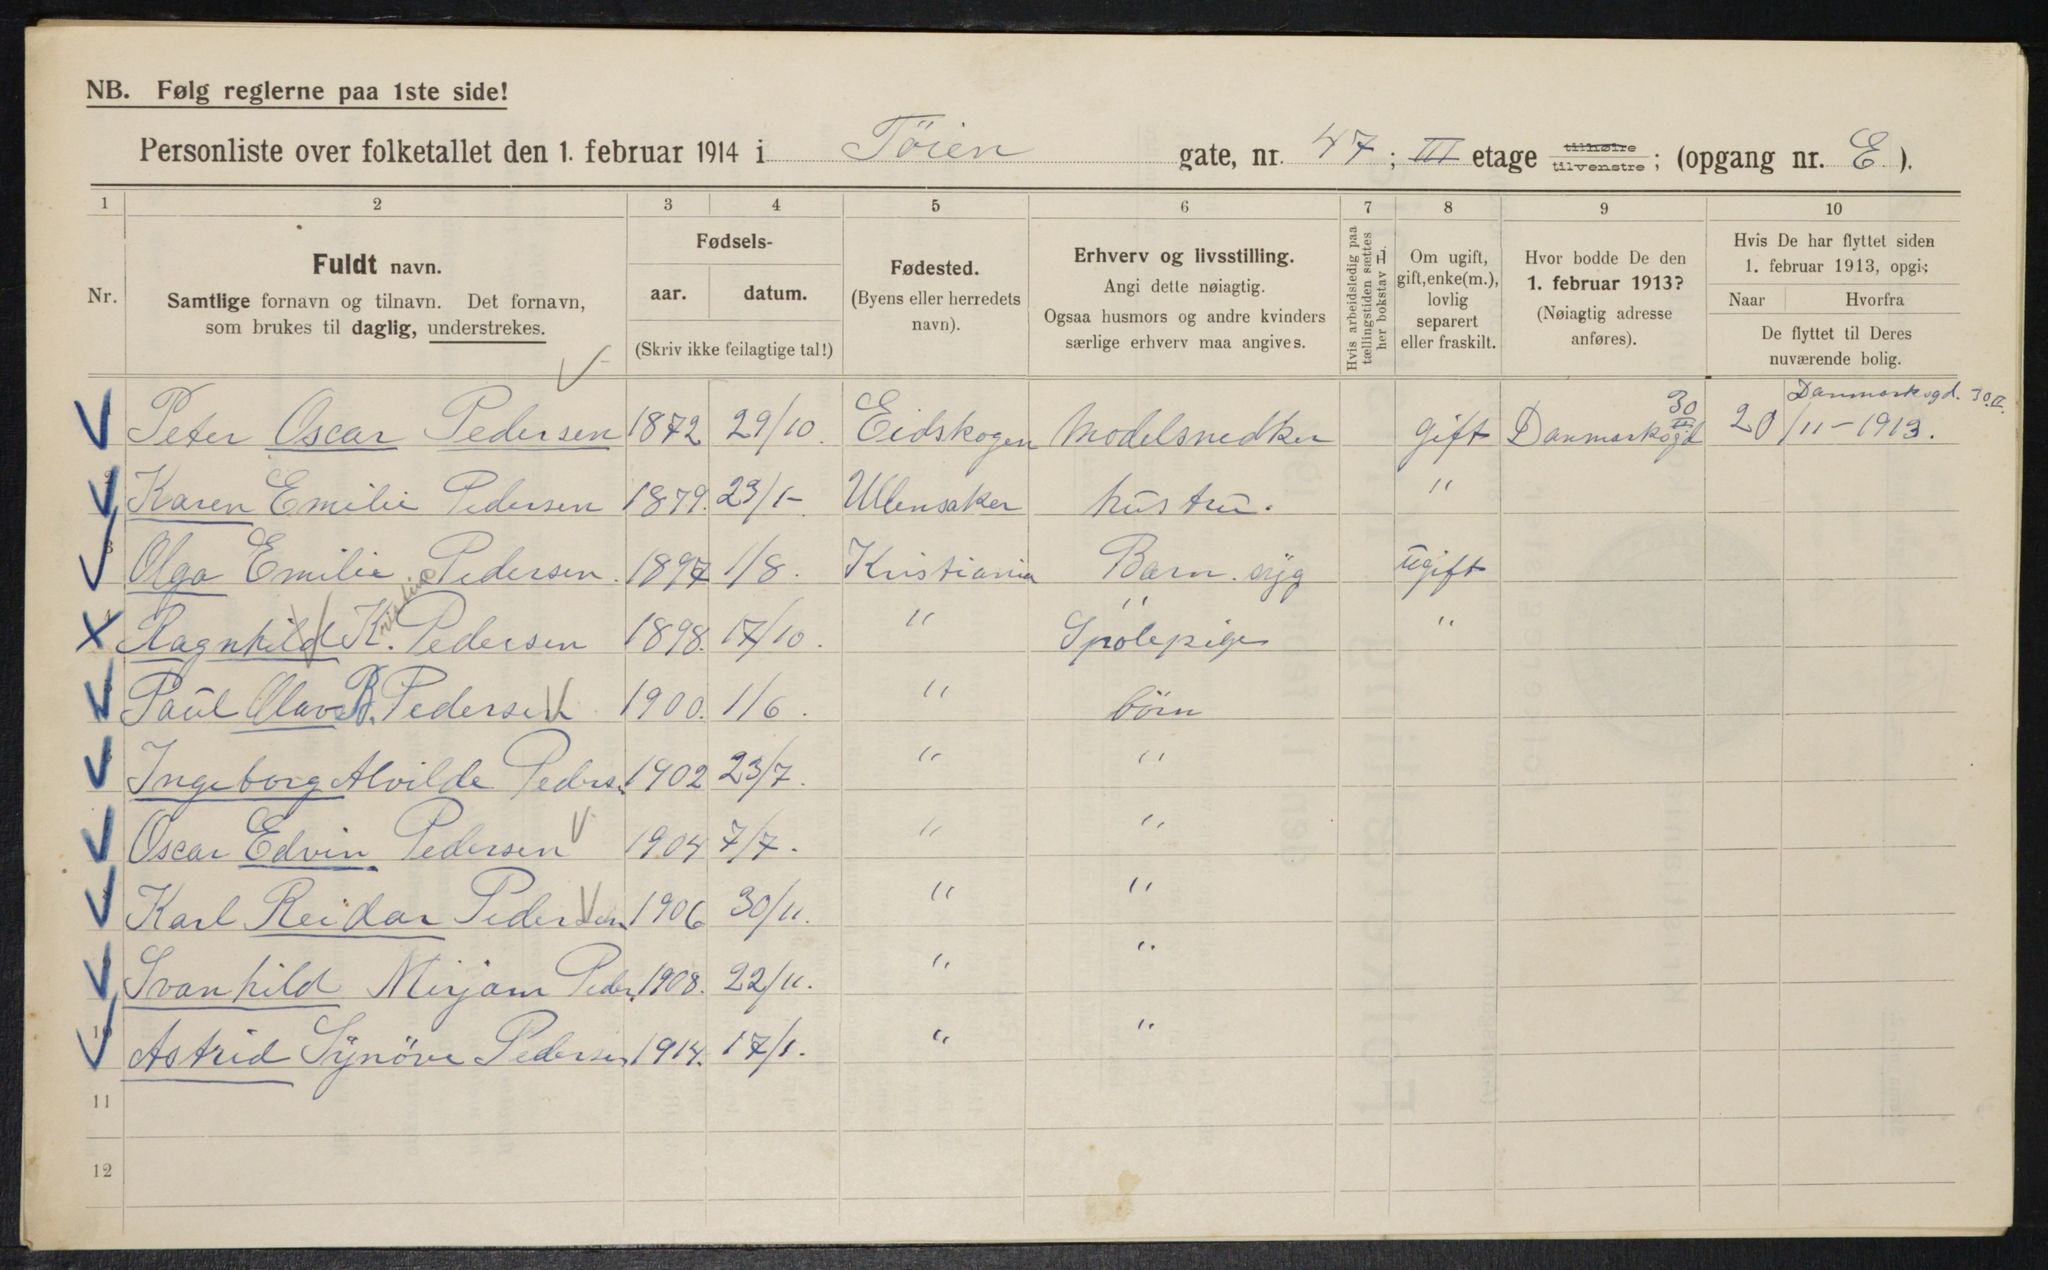 NB. Følg reglerne paa 1ste side!
Personliste over folketallet den 1. februar 1914 i Töien gate, nr. 47; III etage tilhøire tilvenstre; (opgang nr. E).
1 2 3 4 5 6 7 8 9 10
Nr.
Fuldt navn.
Samtlige fornavn og tilnavn. Det fornavn,
som brukes til daglig, understrekes.
Fødsels-
aar. datum.
(Skriv ikke feilagtige tal!)
Fødested.
(Byens eller herredets
navn).
Erhverv og livsstilling.
Angi dette nøiagtig.
Ogsaa husmors og andre kvinders
særlige erhverv maa angives.
Hvis arbeidsledig paa
tællingstiden sættes
her bokstav L.
Om ugift,
gift, enke(m.),
lovlig
separert
eller fraskilt.
Hvor bodde De den
1. februar 1913?
(Nøiagtig adresse
anføres).
Hvis De har flyttet siden
1. februar 1913, opgi:
Naar Hvorfra
De flyttet til Deres
nuværende bolig.
Peter Oscar Pedersen 1872 29/10. Eidskogen Modelsnedker gift Danmarksgd 30 III 20/11-1913. Danmarksgd. 30 II.
Karen Emilie Pedersen 1879. 23/1- Ullensaker hustru. "
Olga Emilie Pedersen. 1897 1/8. Kristiania Barn. syg ugift
Ragnhild K. Pedersen 1898. 17/10. " " Spolepige "
Paul Olav B. Pedersen 1900. 1/6. " börn
Ingeborg Alvilde Peders. 1902 23/7. " "
Oscar Edvin Pedersen 1904 7/7. " "
Karl Reidar Pedersen 1906 30/11. " "
Svanhild Mirjam Peder. 1908. 22/11. " "
10 Astrid Synöve Pedersen 1914. 17/1. " "
11
12